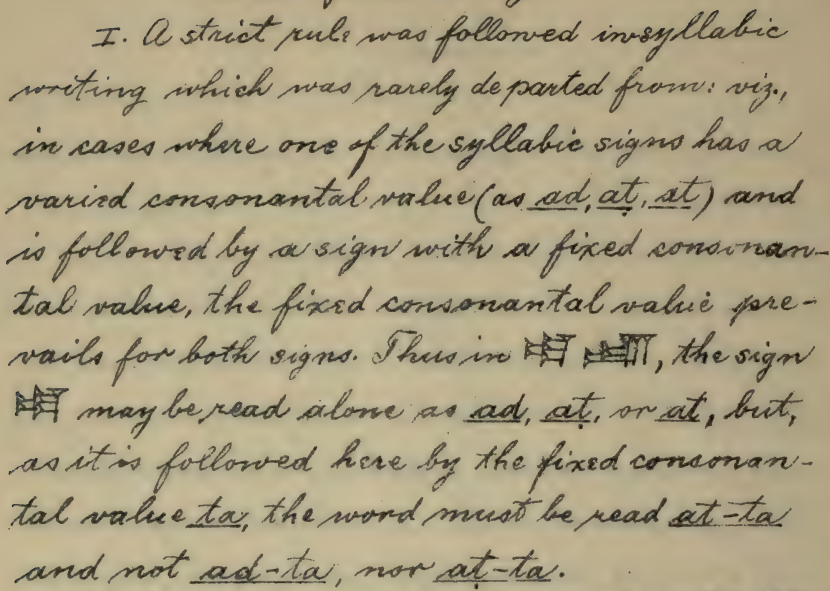 I. A strict rule was followed in syllabic
writing which was rarely departed from: viz.,
in cases where one of the syllabic signs has a
varied consonantal value (as ad, aṭ, at) and
is followed by a sign with a fixed consonan-
tal value, the fixed consonantal value pre-
vails for both signs. Thus in 𒀜 𒋫, the sign
𒀜 may be read alone as ad, aṭ, or at, but,
as it is followed here by the fixed consonan-
tal value ta, the word must be read at-ta
and not ad-ta, nor aṭ-ta.